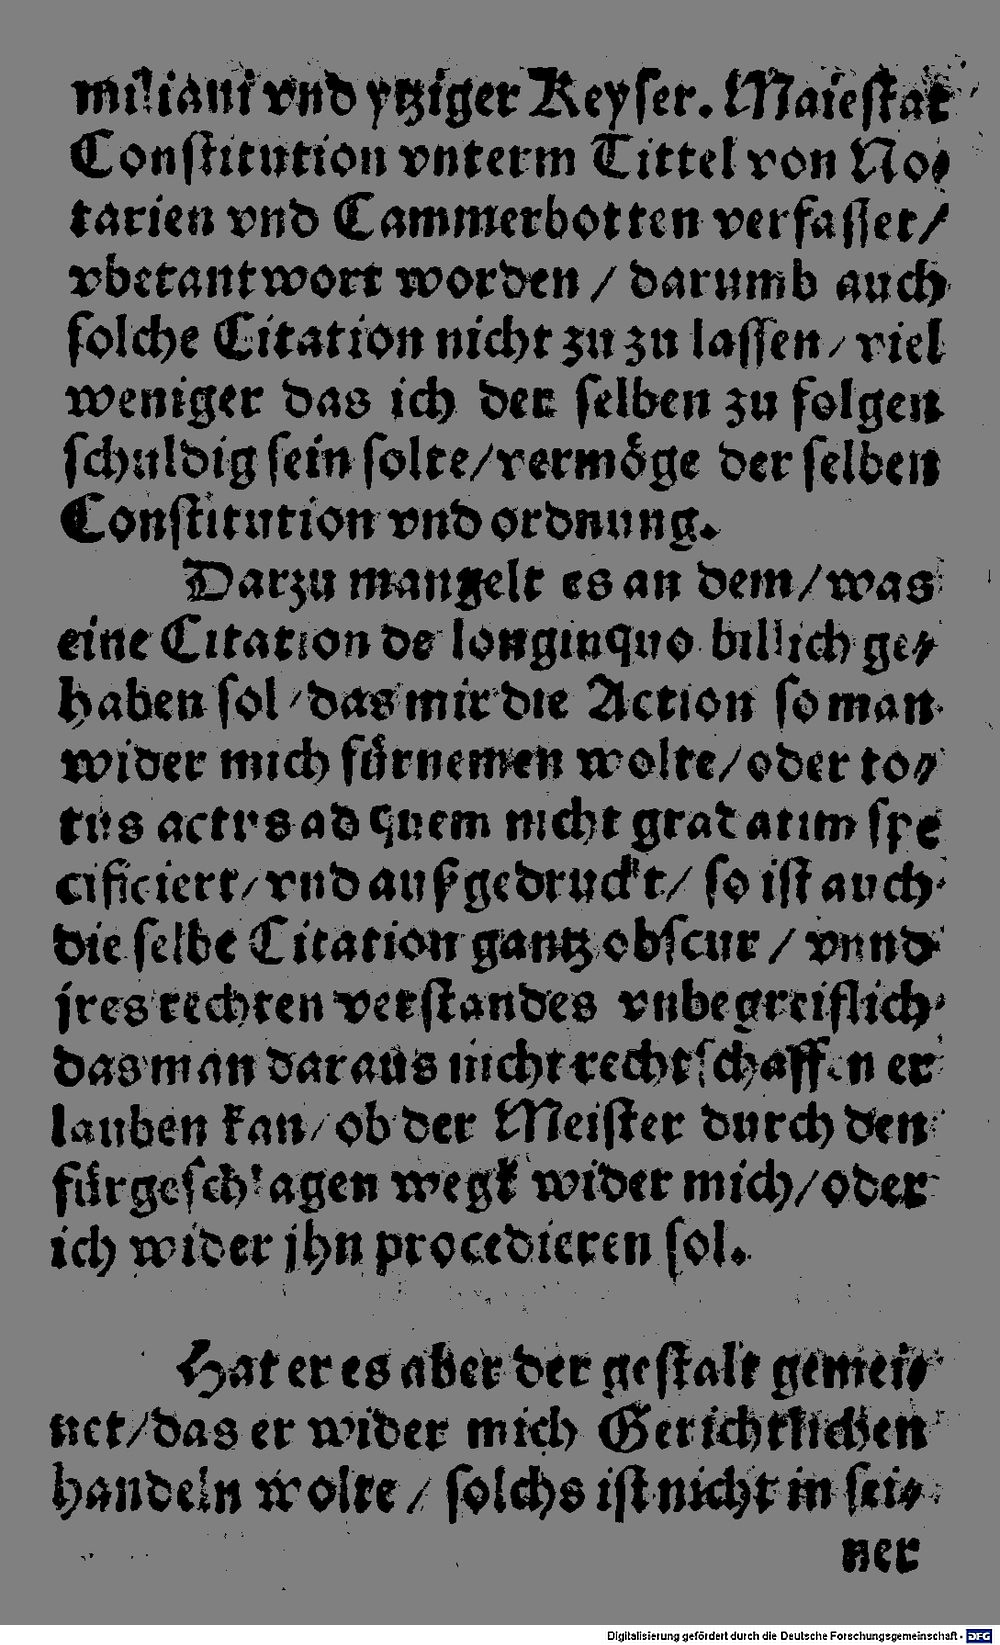 miliani vnd ytziger Keyser. Maiestat
Constitution vnterm Tittel von No⸗
tarien vnd Cammerbotten verfasset/
vberantwort worden / darumb auch
solche Citation nicht zu zu lassen / viel
weniger das ich der selben zu folgen
schuldig sein solte/vermöge der selben
Constitution vnd ordnung.
Darzu mangelt es an dem/was
eine Citation de longinquo billich ge⸗
haben sol/das mir die Action so man
wider mich fürnemen wolte/oder to⸗
tus actus ad quem nicht gradatim spe
cificiert/vnd außgedruckt/ so ist auch
die selbe Citation gantz obscur / vnnd
jres rechten verstandes vnbegreiflich
das man daraus nicht rechtschaffen er
lauben kan/ob der Meister durch den
fürgeschlagen wegk wider mich/oder
ich wider jhn procedieren sol.
Hat er es aber der gestalt gemei⸗
net/das er wider mich Gerichtlichen
handeln wolte / solchs ist nicht in sei⸗
ner
Digitalisierung gefördert durch die Deutsche Forschungsgemeinschaft - DFG